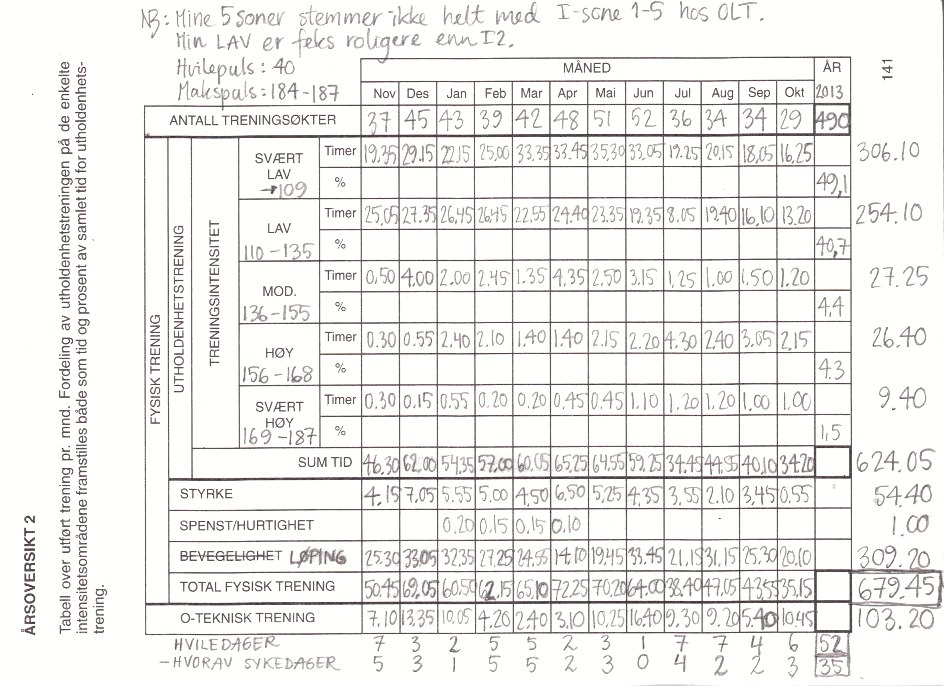 NB: Mine 5 soner stemmer ikke helt med I-sone 1-5 hos OLT.
Min LAV er feks roligere enn I2.
Hvilepuls: 40
Makspuls: 184-187
MÅNED ÅR
Nov Des Jan Feb Mar Apr Mai Jun Jul Aug Sep Okt 2013
ANTALL TRENINGSØKTER 37 45 43 39 42 48 51 52 36 34 34 29 490
FYSISK TRENING
UTHOLDENHETSTRENING
TRENINGSINTENSITET
SVÆRT LAV →109 Timer 19.35 29.15 22.15 25.00 33.35 33.45 35.30 33.05 19.25 20.15 18.05 16.25 306.10
% 49,1
LAV 110-135 Timer 25.05 27.35 26.45 26.45 22.55 24.40 23.35 19.35 8.05 19.40 16.10 13.20 254.10
% 40,7
MOD. 136-155 Timer 0,50 4.00 2.00 2.45 1.35 4.35 2.50 3.15 1.25 1.00 1.50 1.20 27.25
% 4,4
HØY 156-168 Timer 0.30 0.55 2.40 2.10 1.40 1.40 2.15 2.20 4.30 2.40 3.05 2.15 26.40
% 4.3
SVÆRT HØY 169-187 Timer 0.30 0.15 0.55 0.20 0.20 0.45 0.45 1.10 1.20 1.20 1.00 1.00 9.40
% 1,5
SUM TID 46.30 62.00 54.35 57.00 60.05 65.25 64.55 59.25 34.45 44.55 40.10 34.20 624.05
STYRKE 4.15 7.05 5.55 5.00 4,50 6,50 5,25 4.35 3.55 2.10 3.45 0.55 54.40
SPENST/HURTIGHET 0.20 0.15 0.15 0.10 1.00
BEVEGELIGHET LØPING 25.30 33.05 32.35 27.25 24.55 14.10 19.45 33.45 21.15 31.15 25.30 20.10 309.20
TOTAL FYSISK TRENING 50.45 69.05 60.50 62.15 65.10 72.25 70.20 64.00 38.40 47.05 43.55 35.15 679.45
O-TEKNISK TRENING 7.10 13.35 10.05 4.20 2.40 3.10 10.25 16.40 9.30 9.20 5.40 10.45 103.20
HVILEDAGER 7 3 2 5 5 2 3 1 7 7 4 6 52
-HVORAV SYKEDAGER 5 3 1 5 5 2 3 0 4 2 2 3 35
ÅRSOVERSIKT 2
Tabell over utført trening pr. mnd. Fordeling av utholdenhetstreningen på de enkelte
intensitetsområdene framstilles både som tid og prosent av samlet tid for utholdenhets-
trening.
141